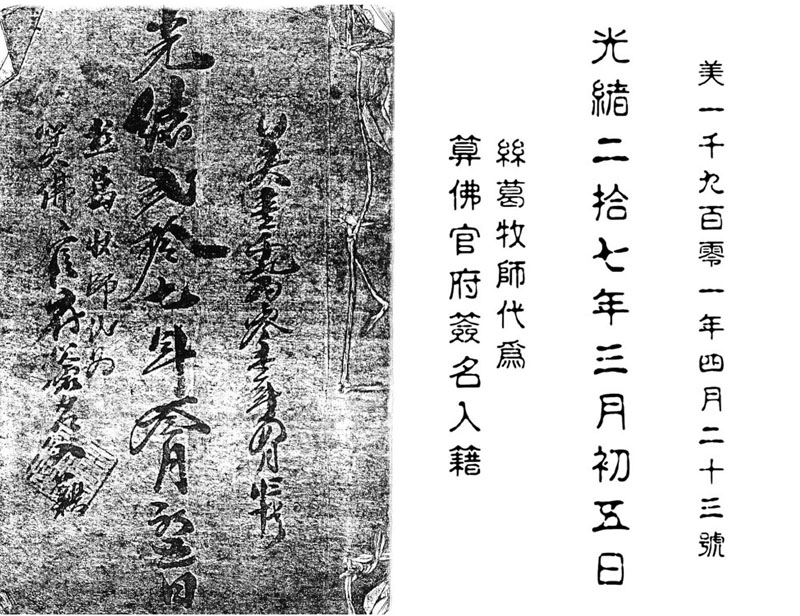 美一千九百零一年四月二十三號
光緒二拾七年三月初五日
絲葛牧師代爲
算佛官府簽名入籍
美壹千九百零壹年四月廿三號
光緒弍拾七年叁月初五日
葛牧師代為
佛官府簽名入籍